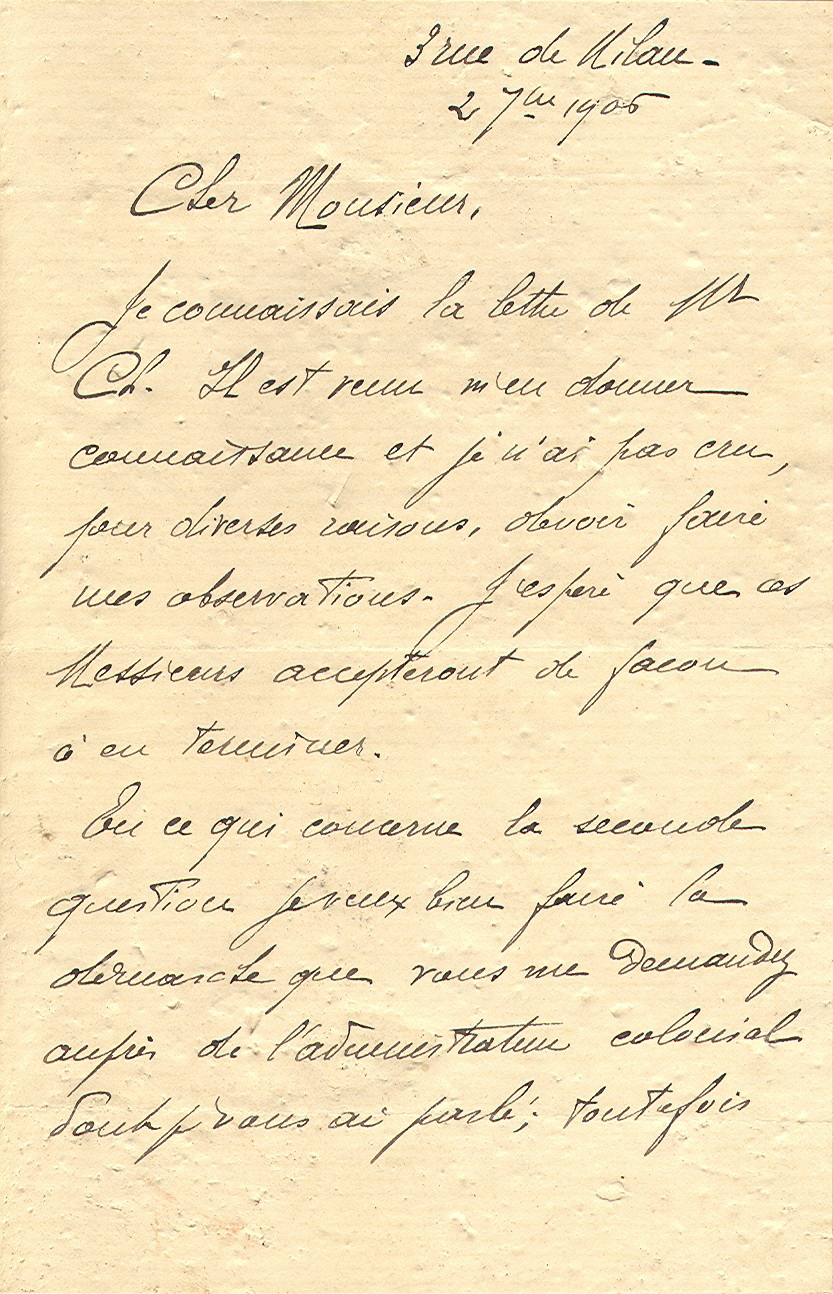 3 rue de Milan -
2 7bre 1906
Cher Monsieur,
Je connaissais la lettre de Mr
Ch. Il est venu m'en donner
connaissance et je n'ai pas cru,
pour diverses raisons, devoir faire
mes observations - J'espère que ces
Messieurs accepteront de façon
à en terminer.
En ce qui concerne la seconde
question je veux bien faire la
démarche que vous me demandez
auprès de l'administrateur colonial
dont je vous ai parlé; toutefois